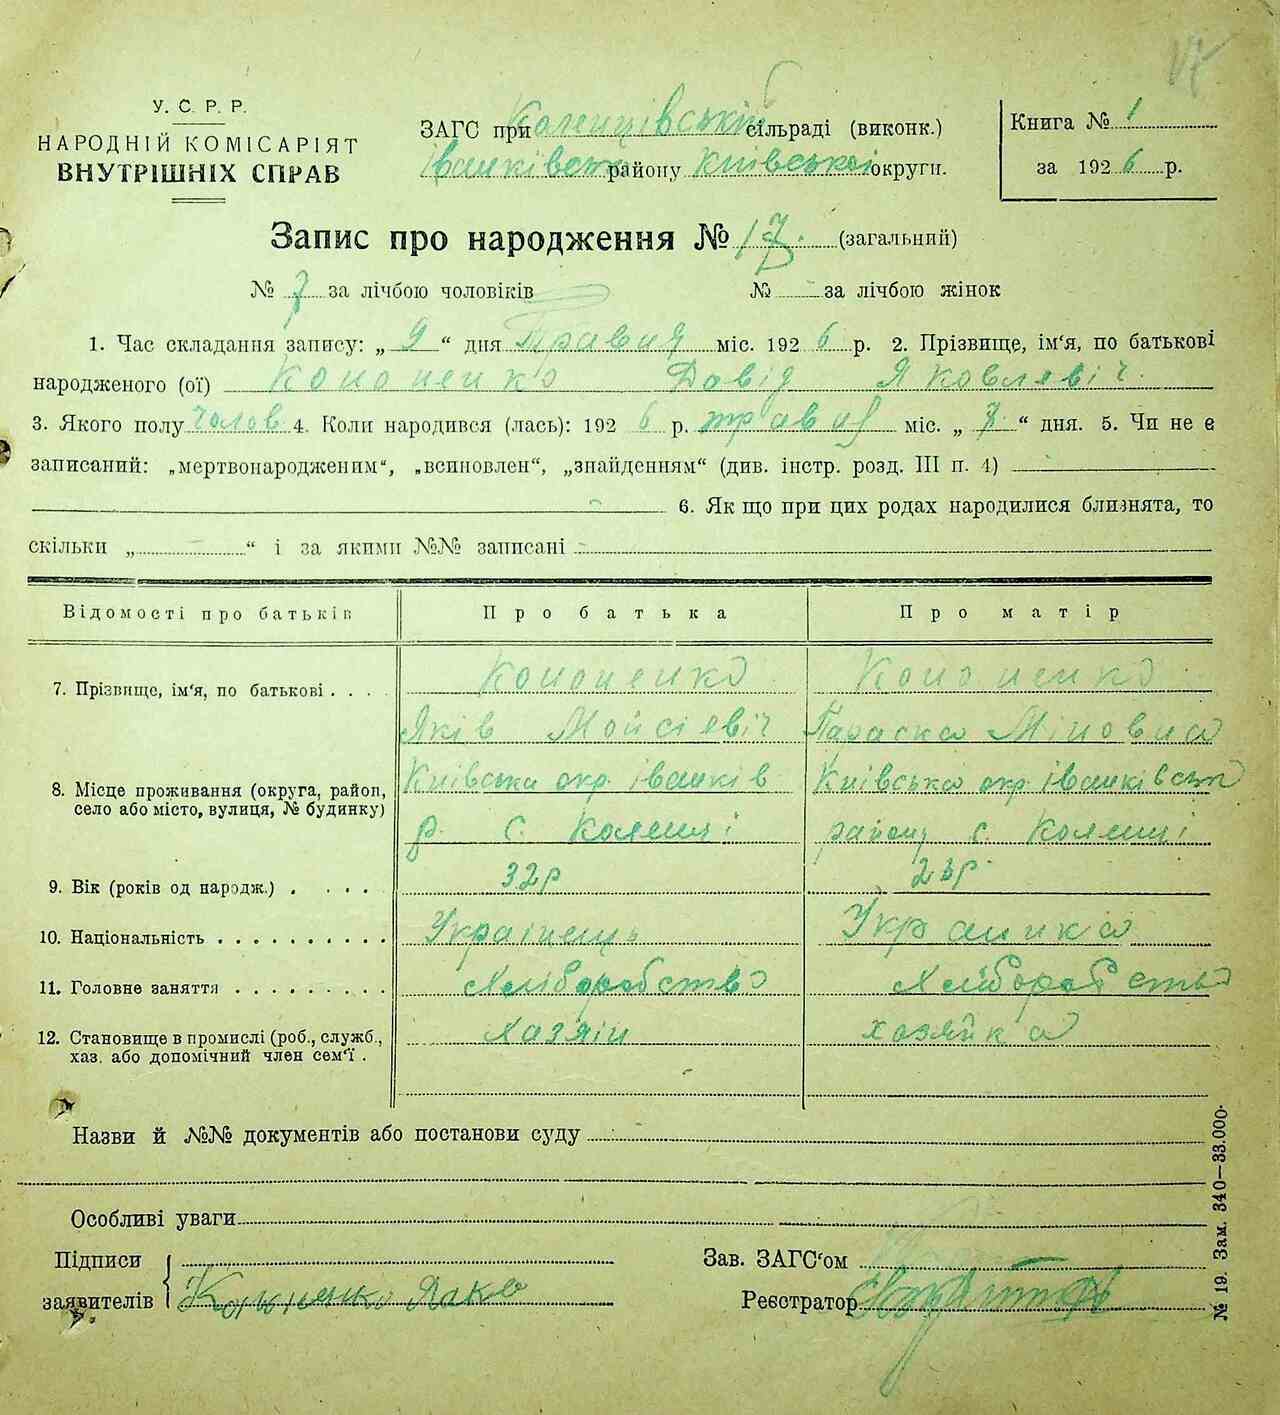 17
У. С. Р. Р.
НАРОДНІЙ КОМІСАРІЯТ
ВНУТРІШНІХ СПРАВ
ЗАГС при Коленцівській сільраді (виконк.)
Іванківськ району Київської округи.
Книга № 1
за 1926 р.
Запис про народження № 17. (загальний)
№ 7 за лічбою чоловіків № – за лічбою жінок
1. Час складання запису: „ 9 “ дня Травня міс. 1926 р. 2. Прізвище, ім‘я, по батькові
народженого (ої) Кононенко Давід Яковлевіч.
3. Якого полу чолов 4. Коли народився (лась): 1926 р. травня міс. „ 7. “ дня. 5. Чи не є
записаний: „мертвонародженим“, „всиновлен“, „знайденням“ (див. інстр. розд. III п. 4)
6. Як що при цих родах народилися близнята, то
скільки „ “ і за якими №№ записані
Відомості про батьків Про батька Про матір
7. Прізвище, ім‘я, по батькові . . . . Кононенко Кононенко
Яків Мойсієвіч Параска Міновна
8. Місце проживання (округа, район, село або місто, вулиця, № будинку) Київська окр. іванків Київська окр. іванківськ
р. с. Коленці району с. Коленці
9. Вік (років од народж.) . . . . 32р 23р.
10. Національність . . . . . . . . . . Українець Украинка
11. Головне заняття . . . . . . . . . Хліборобство Хліборобство
12. Становище в промислі (роб., служб., хаз. або допомічний член сем‘ї . Хазяін хозяйка
Назви й №№ документів або постанови суду
Особливі уваги
Підписи Зав. ЗАГС‘ом
заявителів Кононенко Яков Реєстратор
№ 19. Зам. 340—33.000.